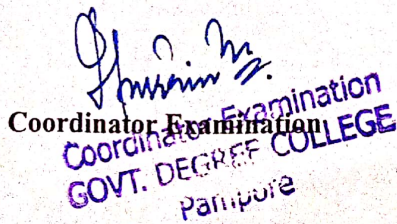 Coordinator Examination
Coordinator Examination
GOVT. DEGREE COLLEGE
Pampore